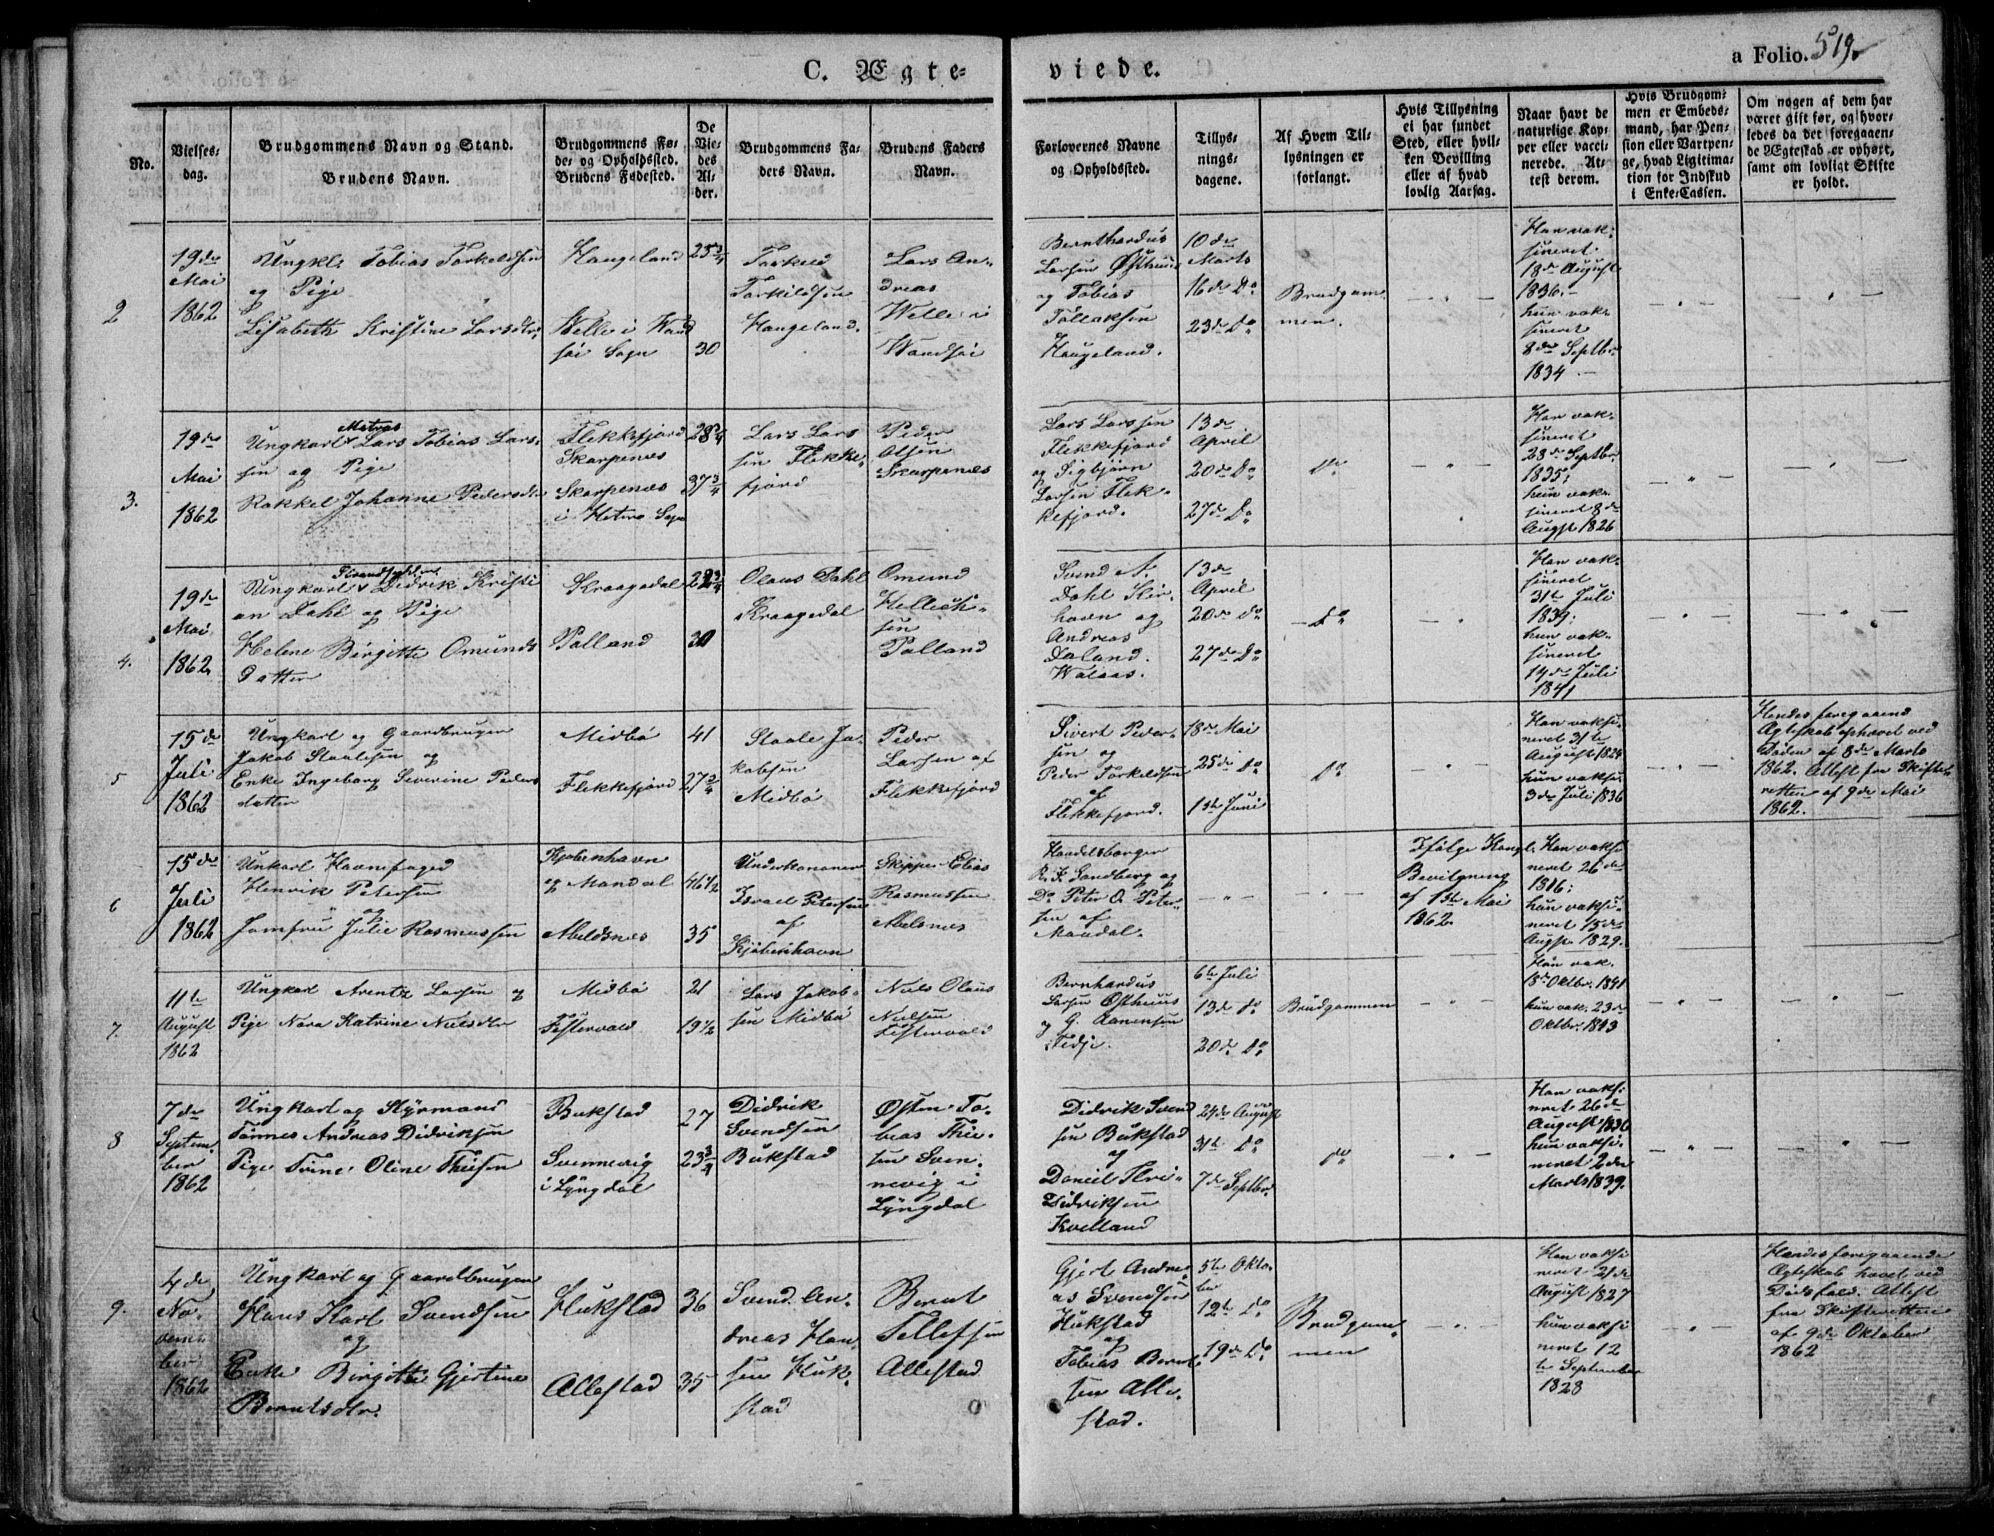 C. Ægte-
viede.
a Folio. 519.
No.
Vielses-
dag.
Brudgommens Navn og Stand.
Brudens Navn.
Brudgommens Fø-
de- og Opholdssted.
Brudens Fødested.
De
Vie-
des
Al-
der.
Brudgommens Fa-
ders Navn.
Brudens Faders
Navn.
Forlovernes Navne
og Opholdssted.
Tillys-
nings-
dagene.
Af Hvem Til-
lysningen er
forlangt.
Hvis Tillysning
ei har fundet
Sted, eller hvil-
ken Bevilling
eller af hvad
lovlig Aarsag.
Naar havt de
naturlige Kop-
per eller vacci-
nerede. At-
test derom.
Hvis Brudgom-
men er Embeds-
mand, har Pen-
sion eller Vartpen-
ge, hvad Ligitima-
tion for Indskud
i Enke-Cassen.
Om nogen af dem har
været gift før, og hvor-
ledes da det foregaaen-
de Ægteskab er ophørt,
samt om lovligt Skifte
er holdt.
2
19de
Mai
1862
Ungkl. Tobias Torkeldsen
og Pige
Lisabeth Kristine Larsdtr.
Haugeland
Welle i Wand
søi Sogn
25 3/4
30
Torkeld
Torkildsen
Haugeland.
Lars An-
dreas
Welle i
Wandsøi
Bernthardus
Larsen Østhuus
og Tobias
Tollaksen
Haugeland.
10de
Marts
16de Do
23de Do
Brudgom
men.
Han vak-
sineret
18de August
1836.
hun vak-
sineret
8de Septbr.
1834
3.
19de
Mai
1862
Ungkarl Matros Lars Tobias Lar-
sen og Pige
Rakkel Johanne Pedersdtr
Flekkefjord
Skarpenæs
Skarpenæs
i Hitterø Sogn
28 3/4
37 3/4
Lars Lar
sen Flekke-
fjord
Peder
Olsen
Skarpenæs
Lars Larssen
Flekkefjord
og Sigbjørn
Larsen Flek-
kefjord.
13de
April
20de Do
27de Do
Do
Han vak-
sineret
28de Septbr.
1835;
hun vak-
sineret 8de
Augst 1826
4.
19de
Mai
1862
Ungkarl Strandsidder Didrik Kristi
an Dahl og Pige
Helene Birgitte Omunds
datter
Kraagedal
Palland
22 3/4
30
Olaus Dahl
Kraagedal
Omund
Hellich-
sen
Palland
Svend A.
Dahl Kir-
havn og
Andreas
Daland.
Walaas.
13de
April
20de Do
27de Do
Do
Han vak-
sineret
31te Juli
1839;
hun vak-
sineret
14de Juli
1841
5
15de
Juli
1862
Ungkarl og Gaardbruger
Jakob Staalesen og
Enke Ingeborg Severine Peders
datter
Midbø
Flekkefjord
41
27 3/4
Staale Ja-
kobsen
Midbø
Peder
Larsen af
Flekkefjord
Sivert Peder-
sen og
Peder Torkeldsen
af
Flekkefjord.
18de Mai
25de Do
1ste Juni
Do
Han vaksi-
neret 31te
August 1824
hun vaksi.
3de Juli 1836
Hendes foregaaend
Ægteskab ophævet ved
Døden af 8de Marts
1862. Attest fra Skifte-
retten af 9de Mai
1862.
6
15de
Juli
1862
Unkarl Havnefoged
Henrik Petersen
og
Jomfru Julie Rasmussen
Kjøbenhavn
og Mandal
Abeldsnes
46 1/2
35
Underkanoner
Israel Petersen
af
Kjøbenhavn
Skipper Elias
Rasmussen
Abelsnes
Handelsborger
R. F. Sandberg og
Do Peter O. Peter-
sen af
Mandal.
Ifølge Kongl.
Bevilgning
af 1ste Mai
1862.
Han vaksi
neret 26de
1816;
hun vaksi-
neret 15de
Augst. 1829.
7.
11te
August
1862
Ungkarl Arentz Larsen og
Pige Nora Katrine Nielsdtr
Midbø
Festervold
21
19 1/2
Lars Jakob-
sen Midbø
Niels Olaus
Nielsen
Festervold
Bernhardus
Larsen Østhuus
og G. Aanensen
Tedje.
6te Juli
13de Do
20de Do
Brudgommen
Han vak.
18de Oktbr. 1841
hun vak. 23de
Oktbr. 1843
8
7de
Septem-
ber
1862
Ungkarl og Styrmand
Tønnes Andreas Didriksen
Pige Trine Oline Thiesen
Bukstad
Svennevig
i Lyngdal
27
23 3/4
Didrik
Svendsen
Bukstad
Østen To-
bias Thie-
sen Sven-
nevig i
Lyngdal
Didrik Svend
sen Bukstad
og
Daniel
Didriksen
Kvelland
24de August
31te Do
7de Septbr.
Do
Han vaksi
neret 26de
August 1836
hun vaksi-
neret 2den
Marts 1839.
9.
4de
No-
vem-
ber
1862
Ungkarl og Gaardbruger
Hans Karl Svendsen
og
Enke Birgitte Gjertine
Berntsdtr.
Hukstad
Allestad
36
35
Svend An-
dreas Han-
sen Huk-
stad
Bernt
Tellefsen
Allestad
Gjert Andre-
as Svendsen
Hukstad
og
Tobias Bernt-
sen Alle-
stad.
5te Okto-
ber
12te Do
19de Do
Brudgom-
men
Han vaksi
neret 21de
August 1827
hun vaksi
neret 12
te September
1828
Hendes foregaaende
Ægteskab hævet ved
Dødsfald. Attest
fra Skifteretten
af 9de Oktober
1862